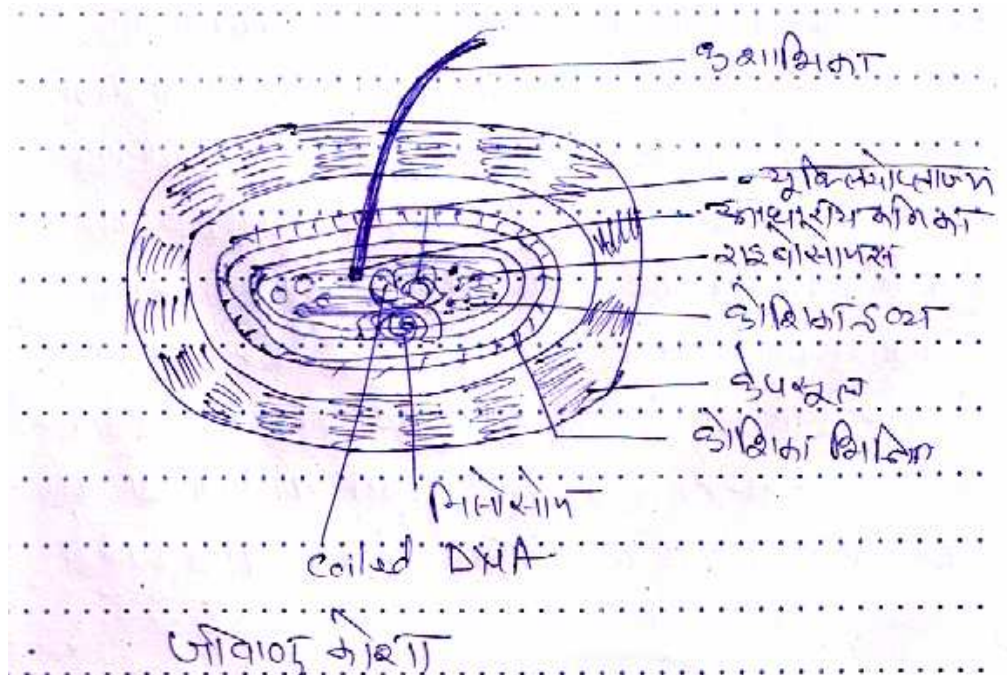 कशाभिका
न्यूक्लियोप्लाज्म
आधारीय कणिका
राइबोसोमस
कोशिका द्रव्य
केपसूल
कोशिका भित्ति
मिसोसोम
coiled DNA
जीवाणु कोशा